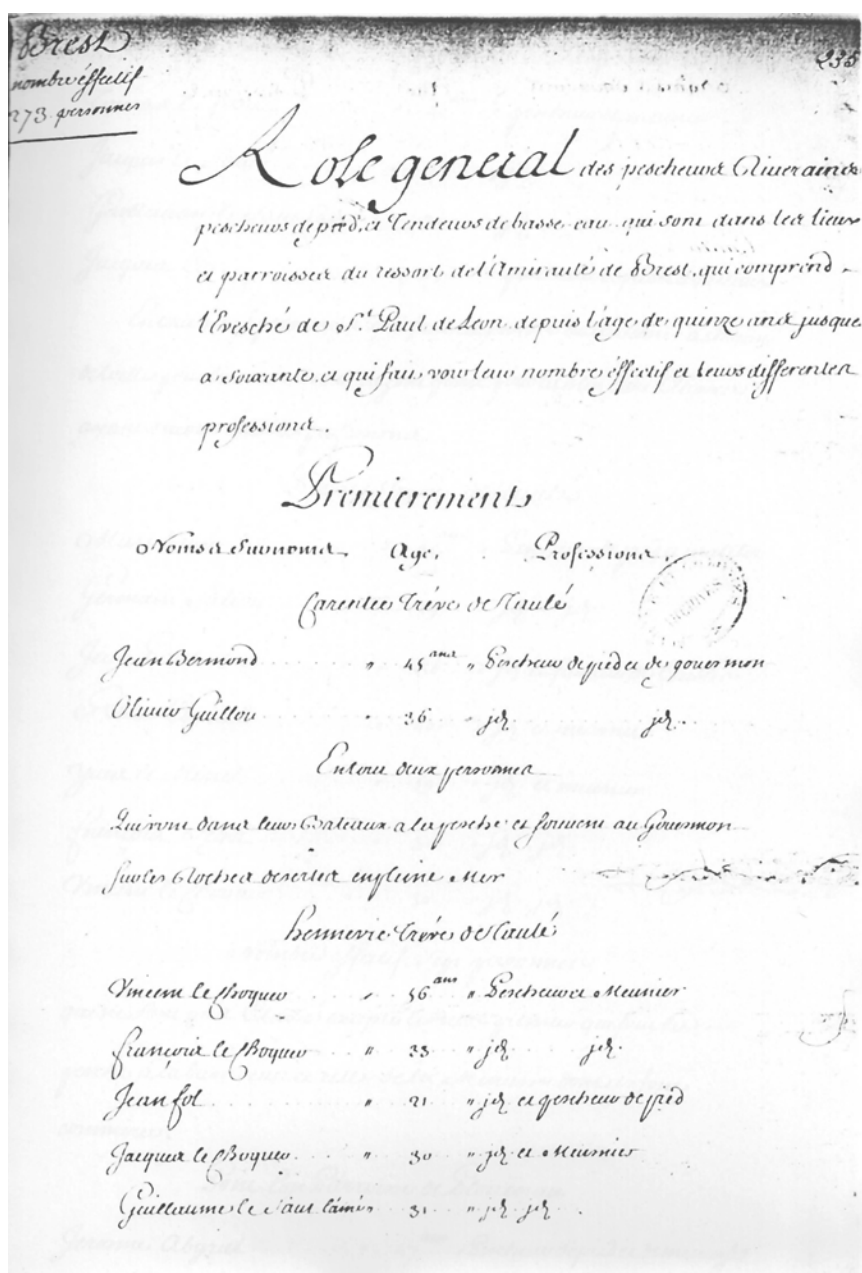 Brest
nombre éffectif
273. personnes
235
Role general des pescheurs Riverains
pescheurs de pied, et Tendeurs de basse-eau qui sont dans les lieux
et parroisses du ressort de l'Amirauté de Brest, qui comprend
l'Evesché de St. Paul de Leon depuis l'âge de quinze ans jusque
a soixante et qui fait voir leur nombre éffectif et leurs differentes
professions.
Premierement
Noms et Surnoms. Age. Professions.
Carentec Tréve de Taulé
Jean Bermond " 45 ans " Pescheur de pied et de gouesmon
Olivier Guillou " 36 " jd. jd.
En tout deux personnes
Qui vont dans leurs Bateaux a la pesche et souvent au Gouesmon
sur les Roches desertes en pleine Mer
Hennevic Tréve de Taulé
Vincent le " 56 ans " Pescheur et Meunier
François le " 33 " jd. jd.
Jean fol " 21 " jd. et pescheur de pied
Jacques le " 30 " jd. et Meunier
Guillaume le Saut l'ainé " 31 " jd. jd.